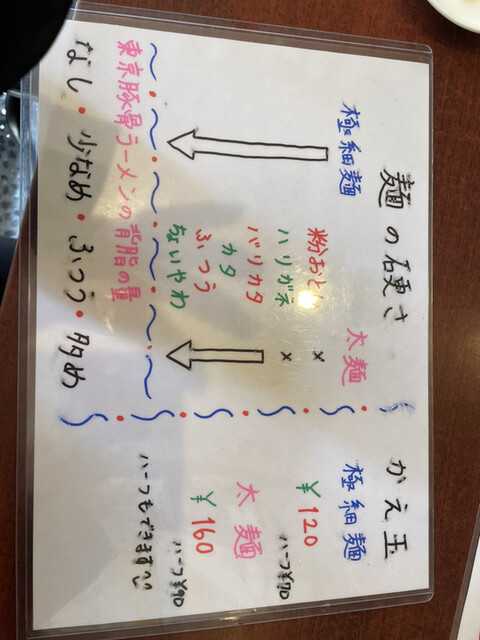 麺の硬さ
極細麺 太麺
粉おとし ×
ハリガネ ×
バリカタ
カタ
ふつう
ちょいやわ
東京豚骨ラーメンの背脂の量
なし・少なめ・ふつう・多め
かえ玉
極細麺
¥120 ハーフ¥70
太麺
¥160 ハーフ¥90
ハーフもできます